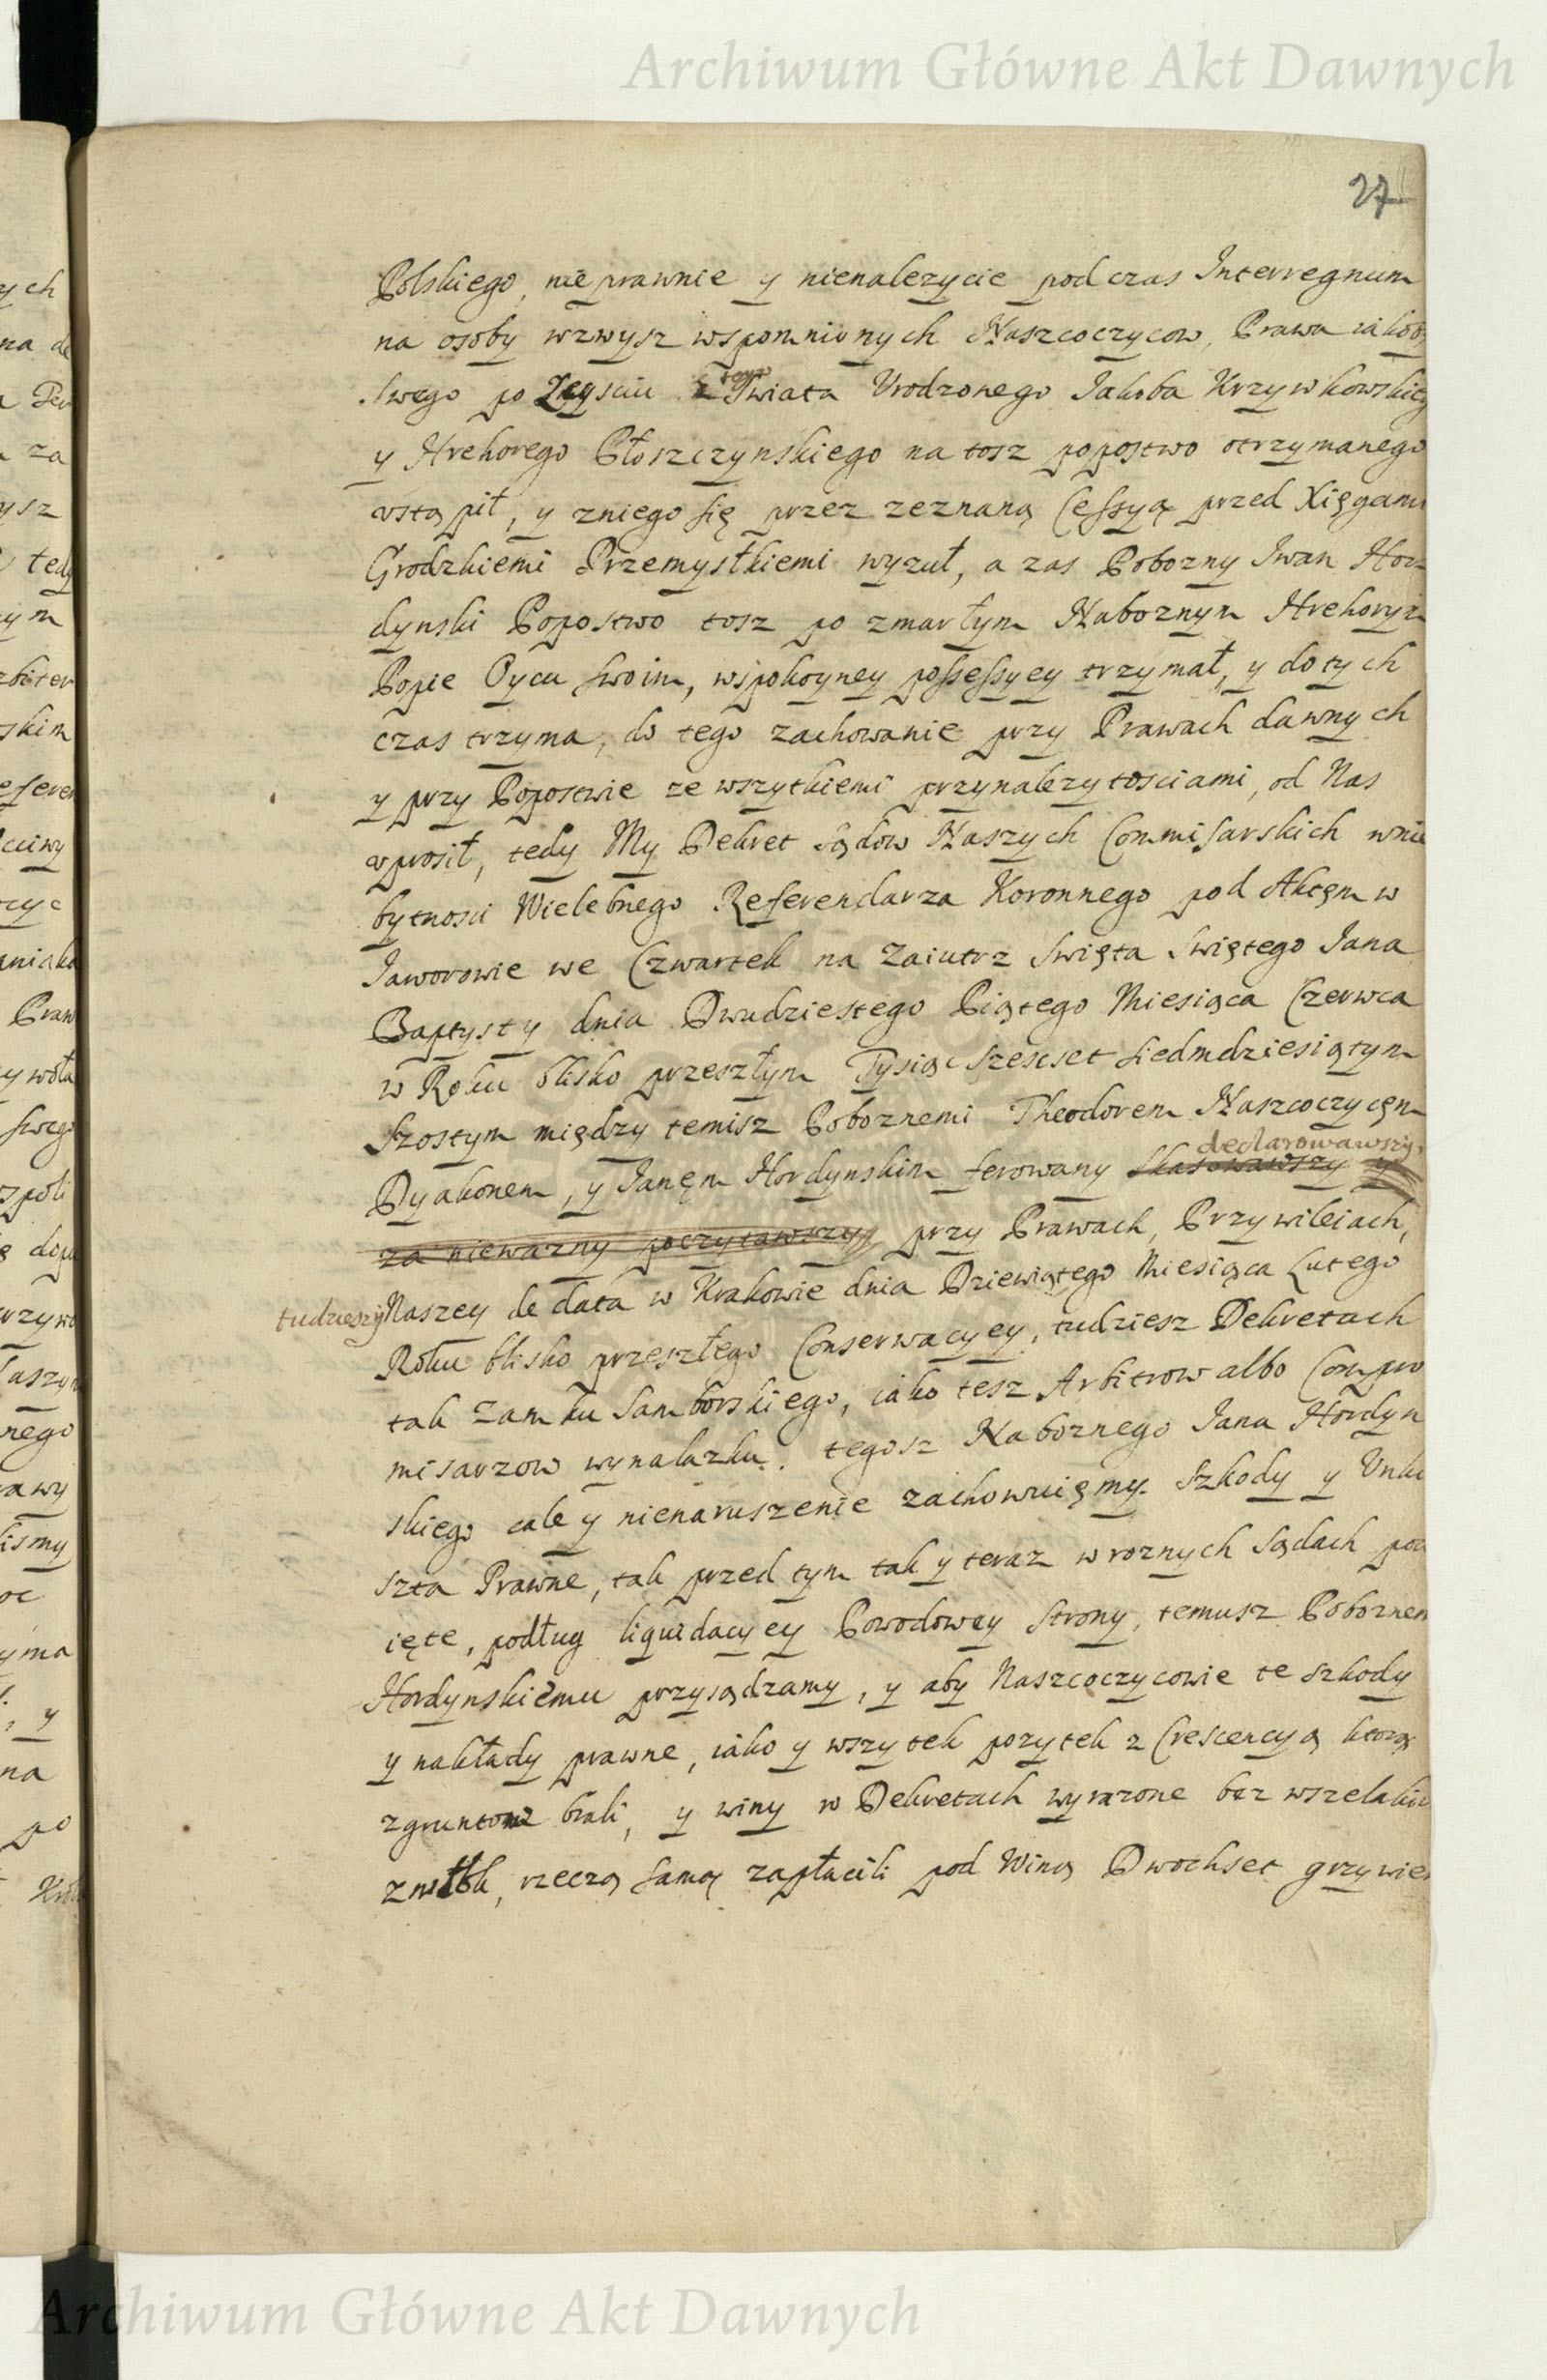 Archiwum Główne Akt Dawnych
27
Polskiego, nie prawnie y nienalezycie podczas Interregnum
na osoby wzwysz wspomnionych Naszcoczycow, Prawa iakoby
swego po Zeysciu z tego Swiata Vrodzonego Jakoba Krzywkowskieg
y Hrehorego Płoszczynskiego na tosz popostwo otrzymanego
vstąpił, y zniego się przez zeznaną Cessyą przed Xięgami
Grodzkiemi Przemysłkiemi wyzuł, a zas Pobozny Iwan Hor-
dynski Popostwo tosz po zmarłym Naboznym Hrehorym
Popie Oycu swoim, wspokoyney possessyey trzymał, y do tych
czas trzyma, do tego zachowanie przy Prawach dawnych
y przy Popostwie ze wszytkiemi przynalezytosciami, od Nas
vprosił, tedy My Dekret Sądow Naszych Commisarskich wnie
bytnosci Wielebnego Referendarza Koronnego pod Aktęm w
Jaworowie we Czwartek na Zaiutrz Swięta Swiętego Jana
Baptysty dnia Dwudziestego Piątego Miesiąca Czerwca
w Roku blisko przeszłym Tysiąc Szescset siedmdziesiątym
Szostym między temisz Poboznemi Theodorem Naszcoczycęm
declarowawszy,
Dyakonem, y Janęm Hordynskim ferowany skasowawszy y
za niewazny poczytawszy przy Prawach, Przywileiach,
tudziesz Naszey de data w Krakowie dnia Dziewiątego Miesiąca Lutego
Roku blisko przeszłego Conserwacyey, tudziesz Dekretach
tak Zamku Samborskiego, iako tesz Arbitrow albo Compro
misarzow wynalazku. tegosz Naboznego Jana Hordyn
skiego cale y nienaruszenie zachowuięmy. Szkody y Vnko
szta Prawne, tak przed tym tak y teraz w roznych Sądach pod
ięte, podług liquidacyey Powodowey Strony, temusz Poboznem
Hordynskiemu przysądzamy, y aby Naszcoczycowie te szkody
y nakłady prawne, iako y wszytek pozytek z Crescencyą ktorą
zgruntow brali, y winy w Dekretach wyrazone bez wszelakie
zwłok, rzeczą samą zapłacili pod Winą Dwochset grzywien
Archiwum Główne Akt Dawnych